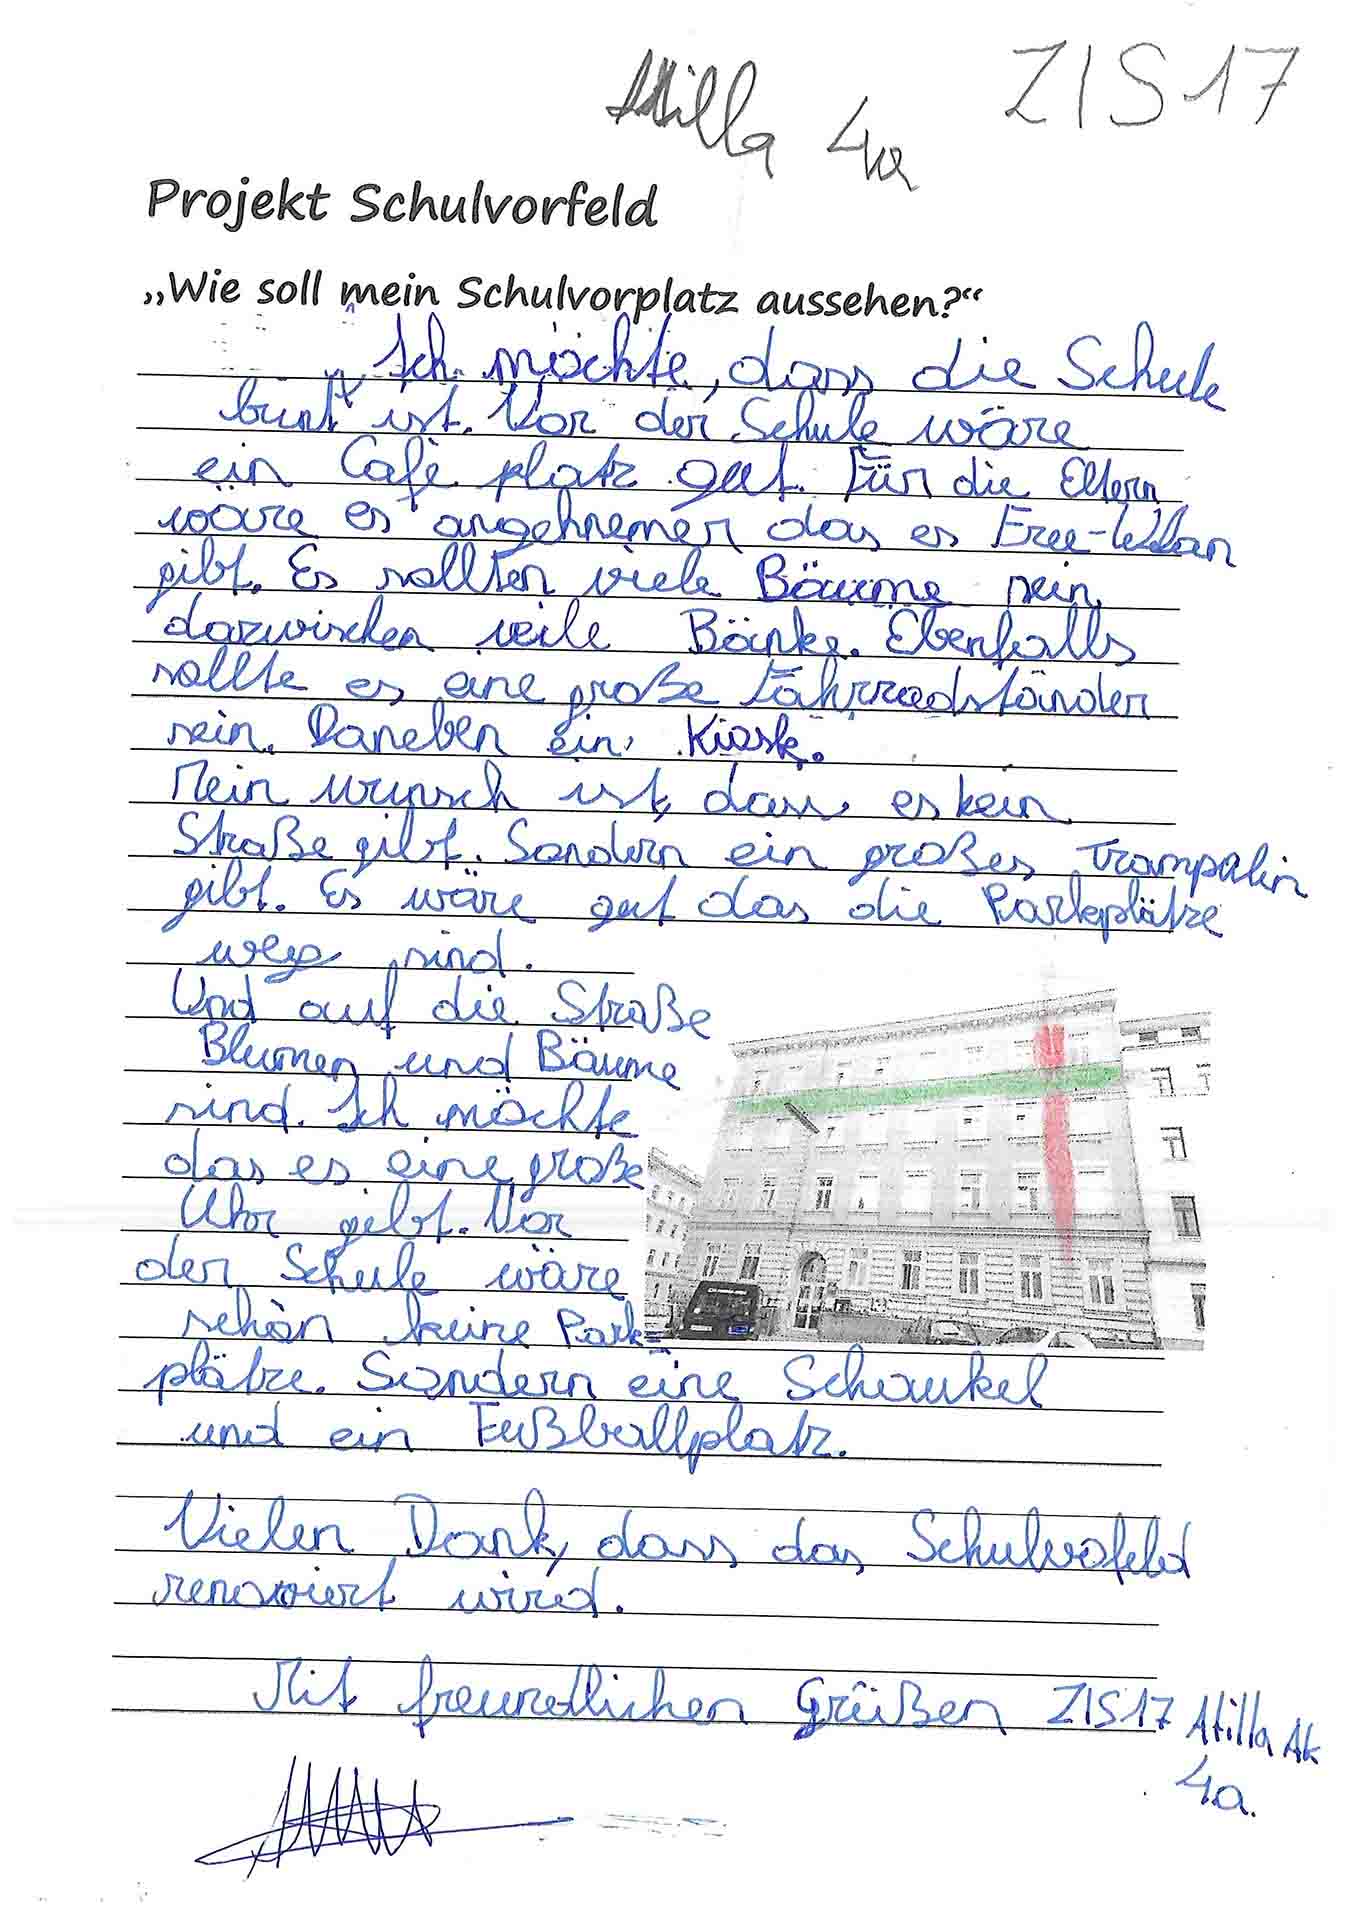 Atilla 4a ZIS 17
Projekt Schulvorfeld
„Wie soll mein Schulvorplatz aussehen?“
Ich möchte, dass die Schule
bunt ist. Vor der Schule wäre
ein Cafè platz gut. Für die Eltern
wäre es angehnemer das es Free-Wlan
gibt. Es sollten viele Bäume sein,
dazwischen veile Bänke. Ebenfalls
sollte es eine große Fahrradständer
sein. Daneben ein Kiosk.
Mein wunsch ist, dass es kein
Straße gibt. Sondern ein großes Trampolin
gibt. Es wäre gut das die Parkplätze
weg sind.
Und auf die Straße
Blumen und Bäume
sind. Ich möchte
das es eine große
Uhr gibt. Vor
der Schule wäre
schön keine Park=
plätze. Sondern eine Schaukel
und ein Fußballplatz.
Vielen Dank, dass das Schulvofeld
renoviert wird.
Mit freundlichen Grüßen ZIS17 Atilla Ak
4a.